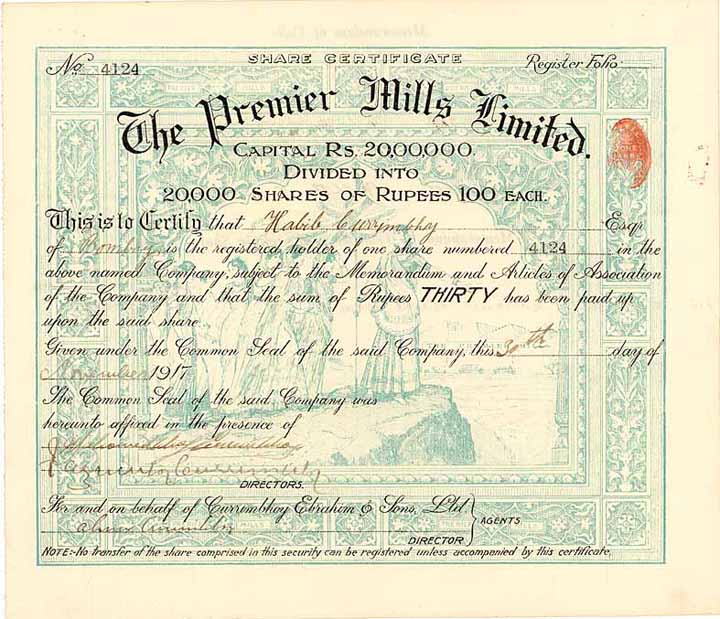 SHARE CERTIFICATE
No. 4124 Register Folio
The Premier Mills Limited.
CAPITAL RS. 20,00,000.
DIVIDED INTO
20,000 SHARES OF RUPEES 100 EACH.
This is to Certify that Habib Currimbhoy Esqr
of Bombay is the registered holder of one share numbered 4124 in the
above named Company, subject to the Memorandum and Articles of Association
of the Company and that the sum of Rupees THIRTY has been paid up
upon the said share.
Given under the Common Seal of the said Company, this 30th day of
November 1917.
The Common Seal of the said Company was
hereunto affixed in the presence of
Currimbhoy
DIRECTORS.
For and on behalf of Currimbhoy Ebrahim & Sons, Ltd
AGENTS
Currimbhoy
DIRECTOR
NOTE:- No transfer of the share comprised in this security can be registered unless accompanied by this certificate.